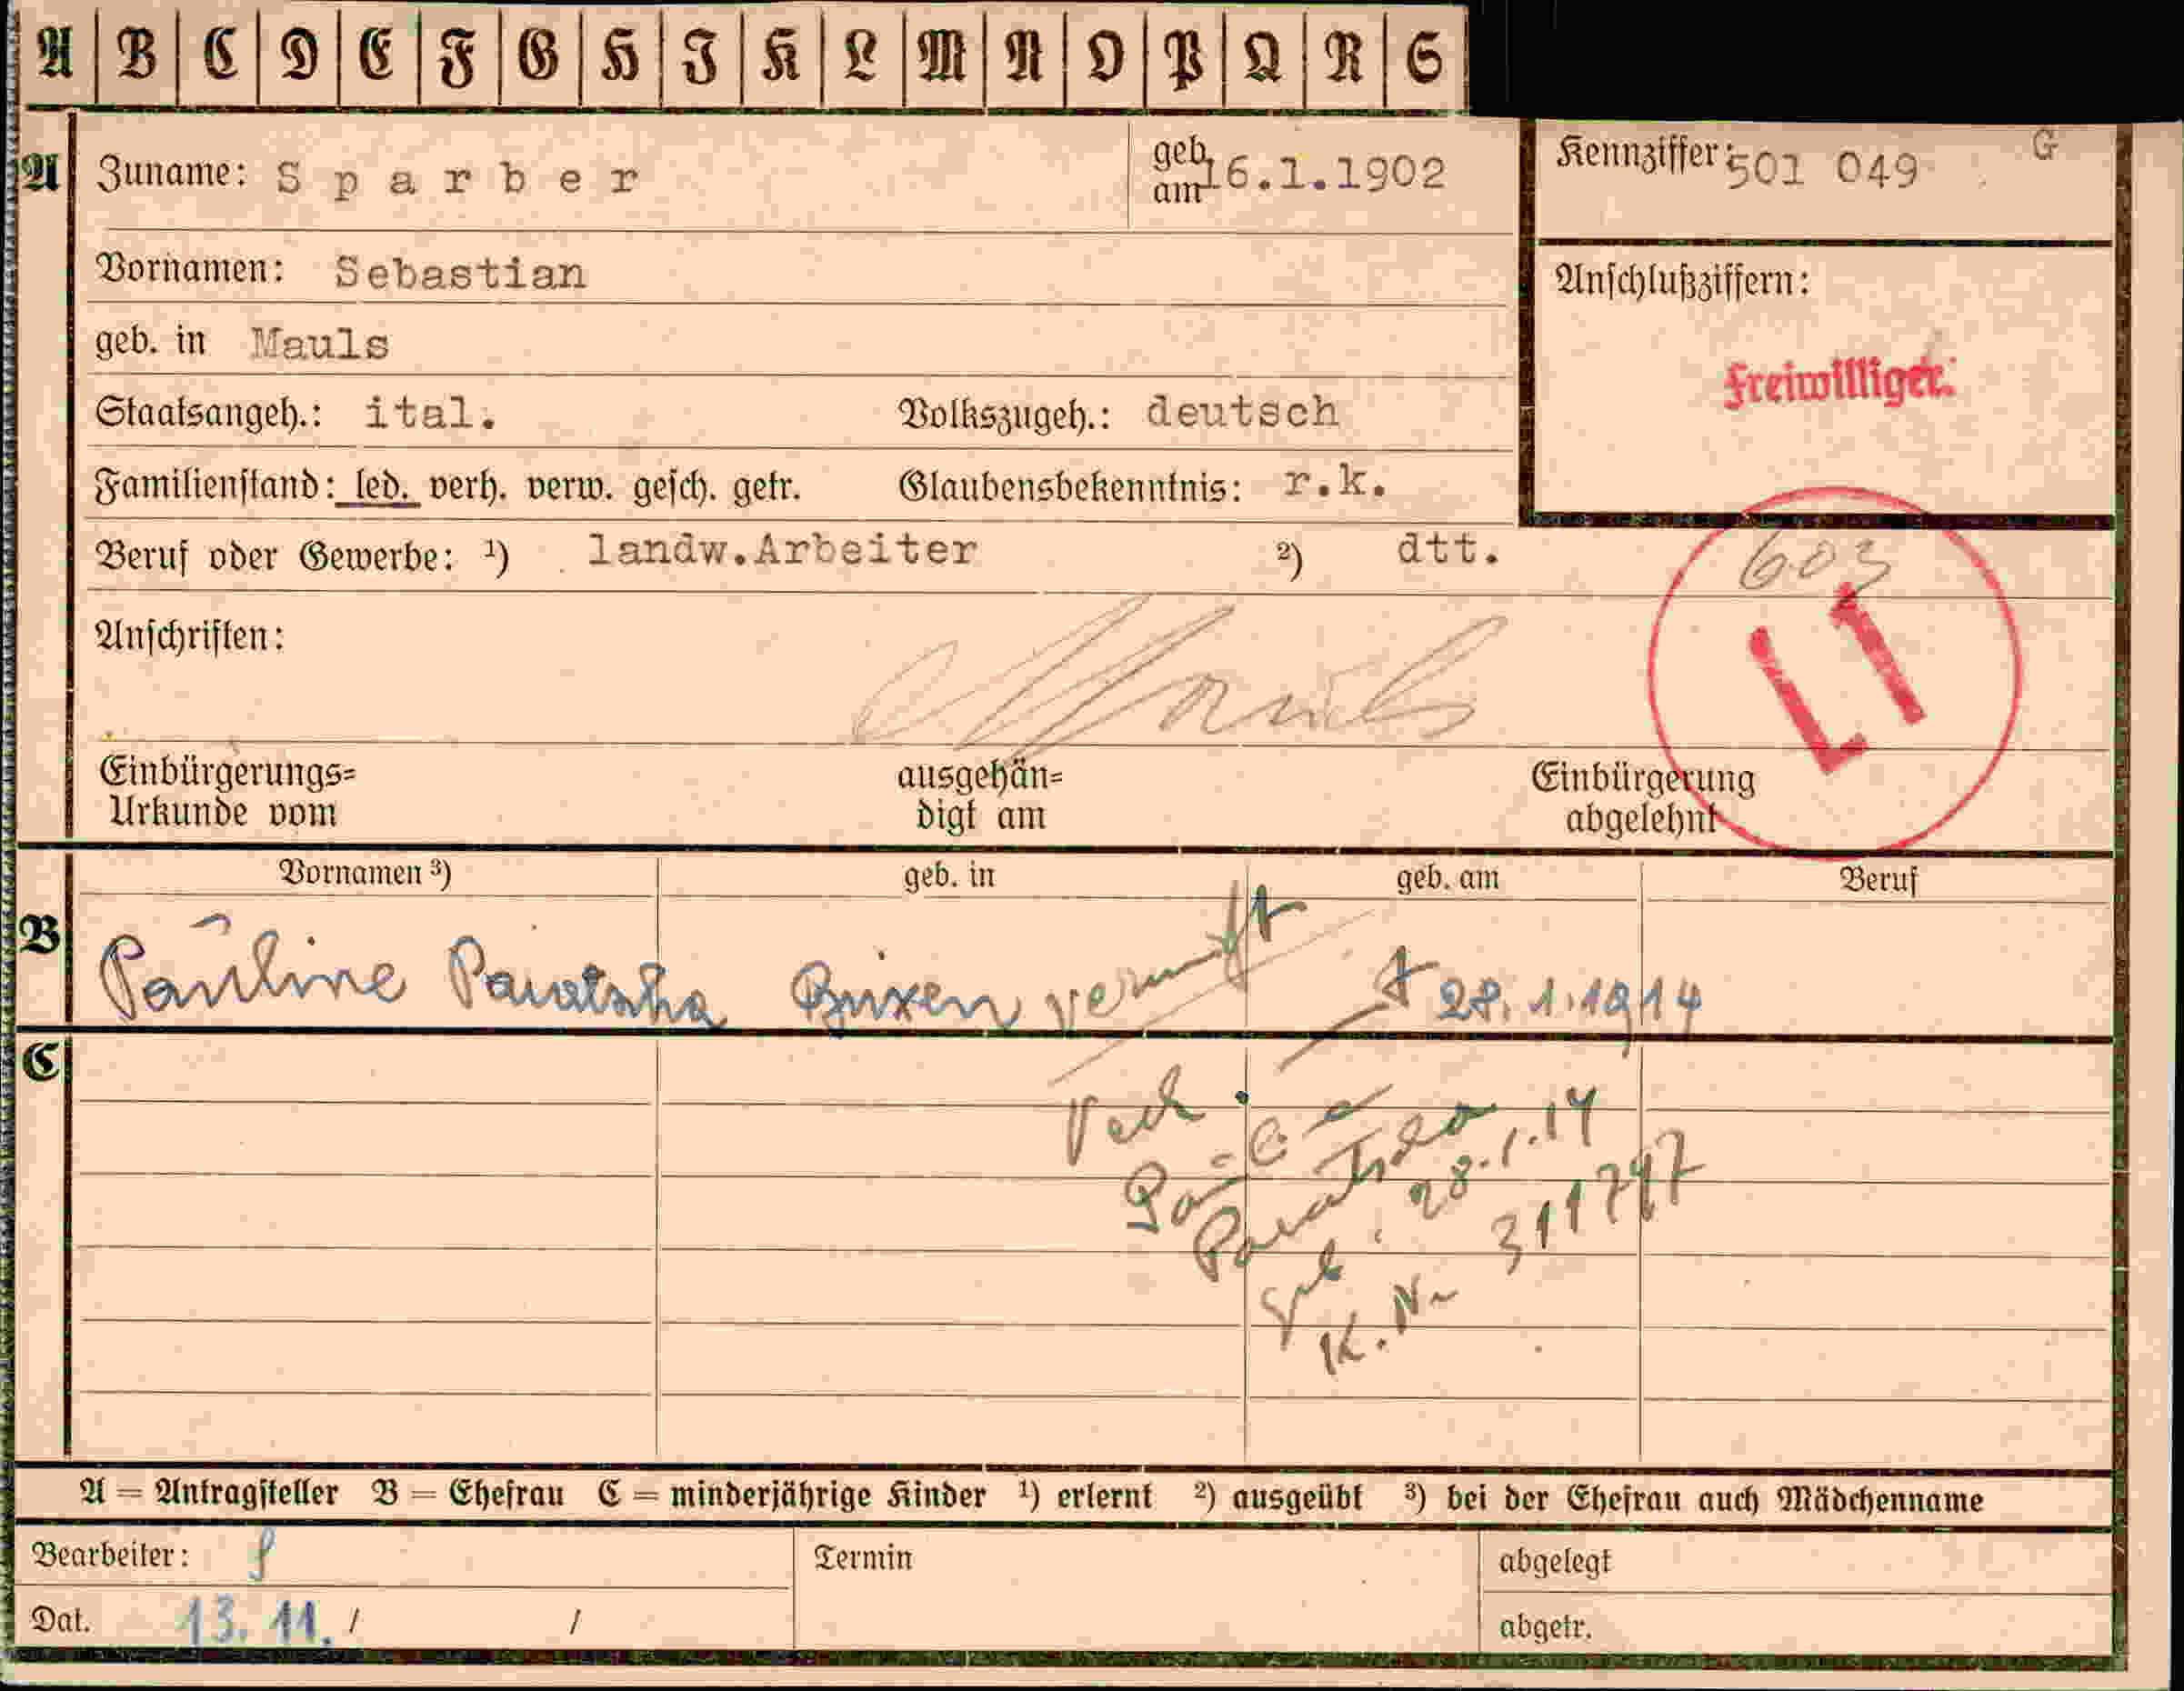 A B C D E F G H I K L M N O P Q R S
A Zuname: Sparber geb. am 16.1.1902 Kennziffer: 501 049 G
Vornamen: Sebastian
Anschlußziffern:
geb. in Mauls
Freiwilliger.
Staatsangeh.: ital. Volkszugeh.: deutsch
Familienstand: led. verh. verw. gesch. getr. Glaubensbekenntnis: r.k.
Beruf oder Gewerbe: ¹) landw.Arbeiter ²) dtt.
603
LT
Anschriften:
Mauls
Einbürgerungs=
Urkunde vom
ausgehän=
digt am
Einbürgerung
abgelehnt
Vornamen ³) geb. in geb. am Beruf
B Pauline Brixen 28.1.1914
C
geb. 28.1.14
K. Nr 311747
A = Antragsteller B = Ehefrau C = minderjährige Kinder ¹) erlernt ²) ausgeübt ³) bei der Ehefrau auch Mädchenname
Bearbeiter: Termin abgelegt
Dat. 13. 11. / / abgetr.